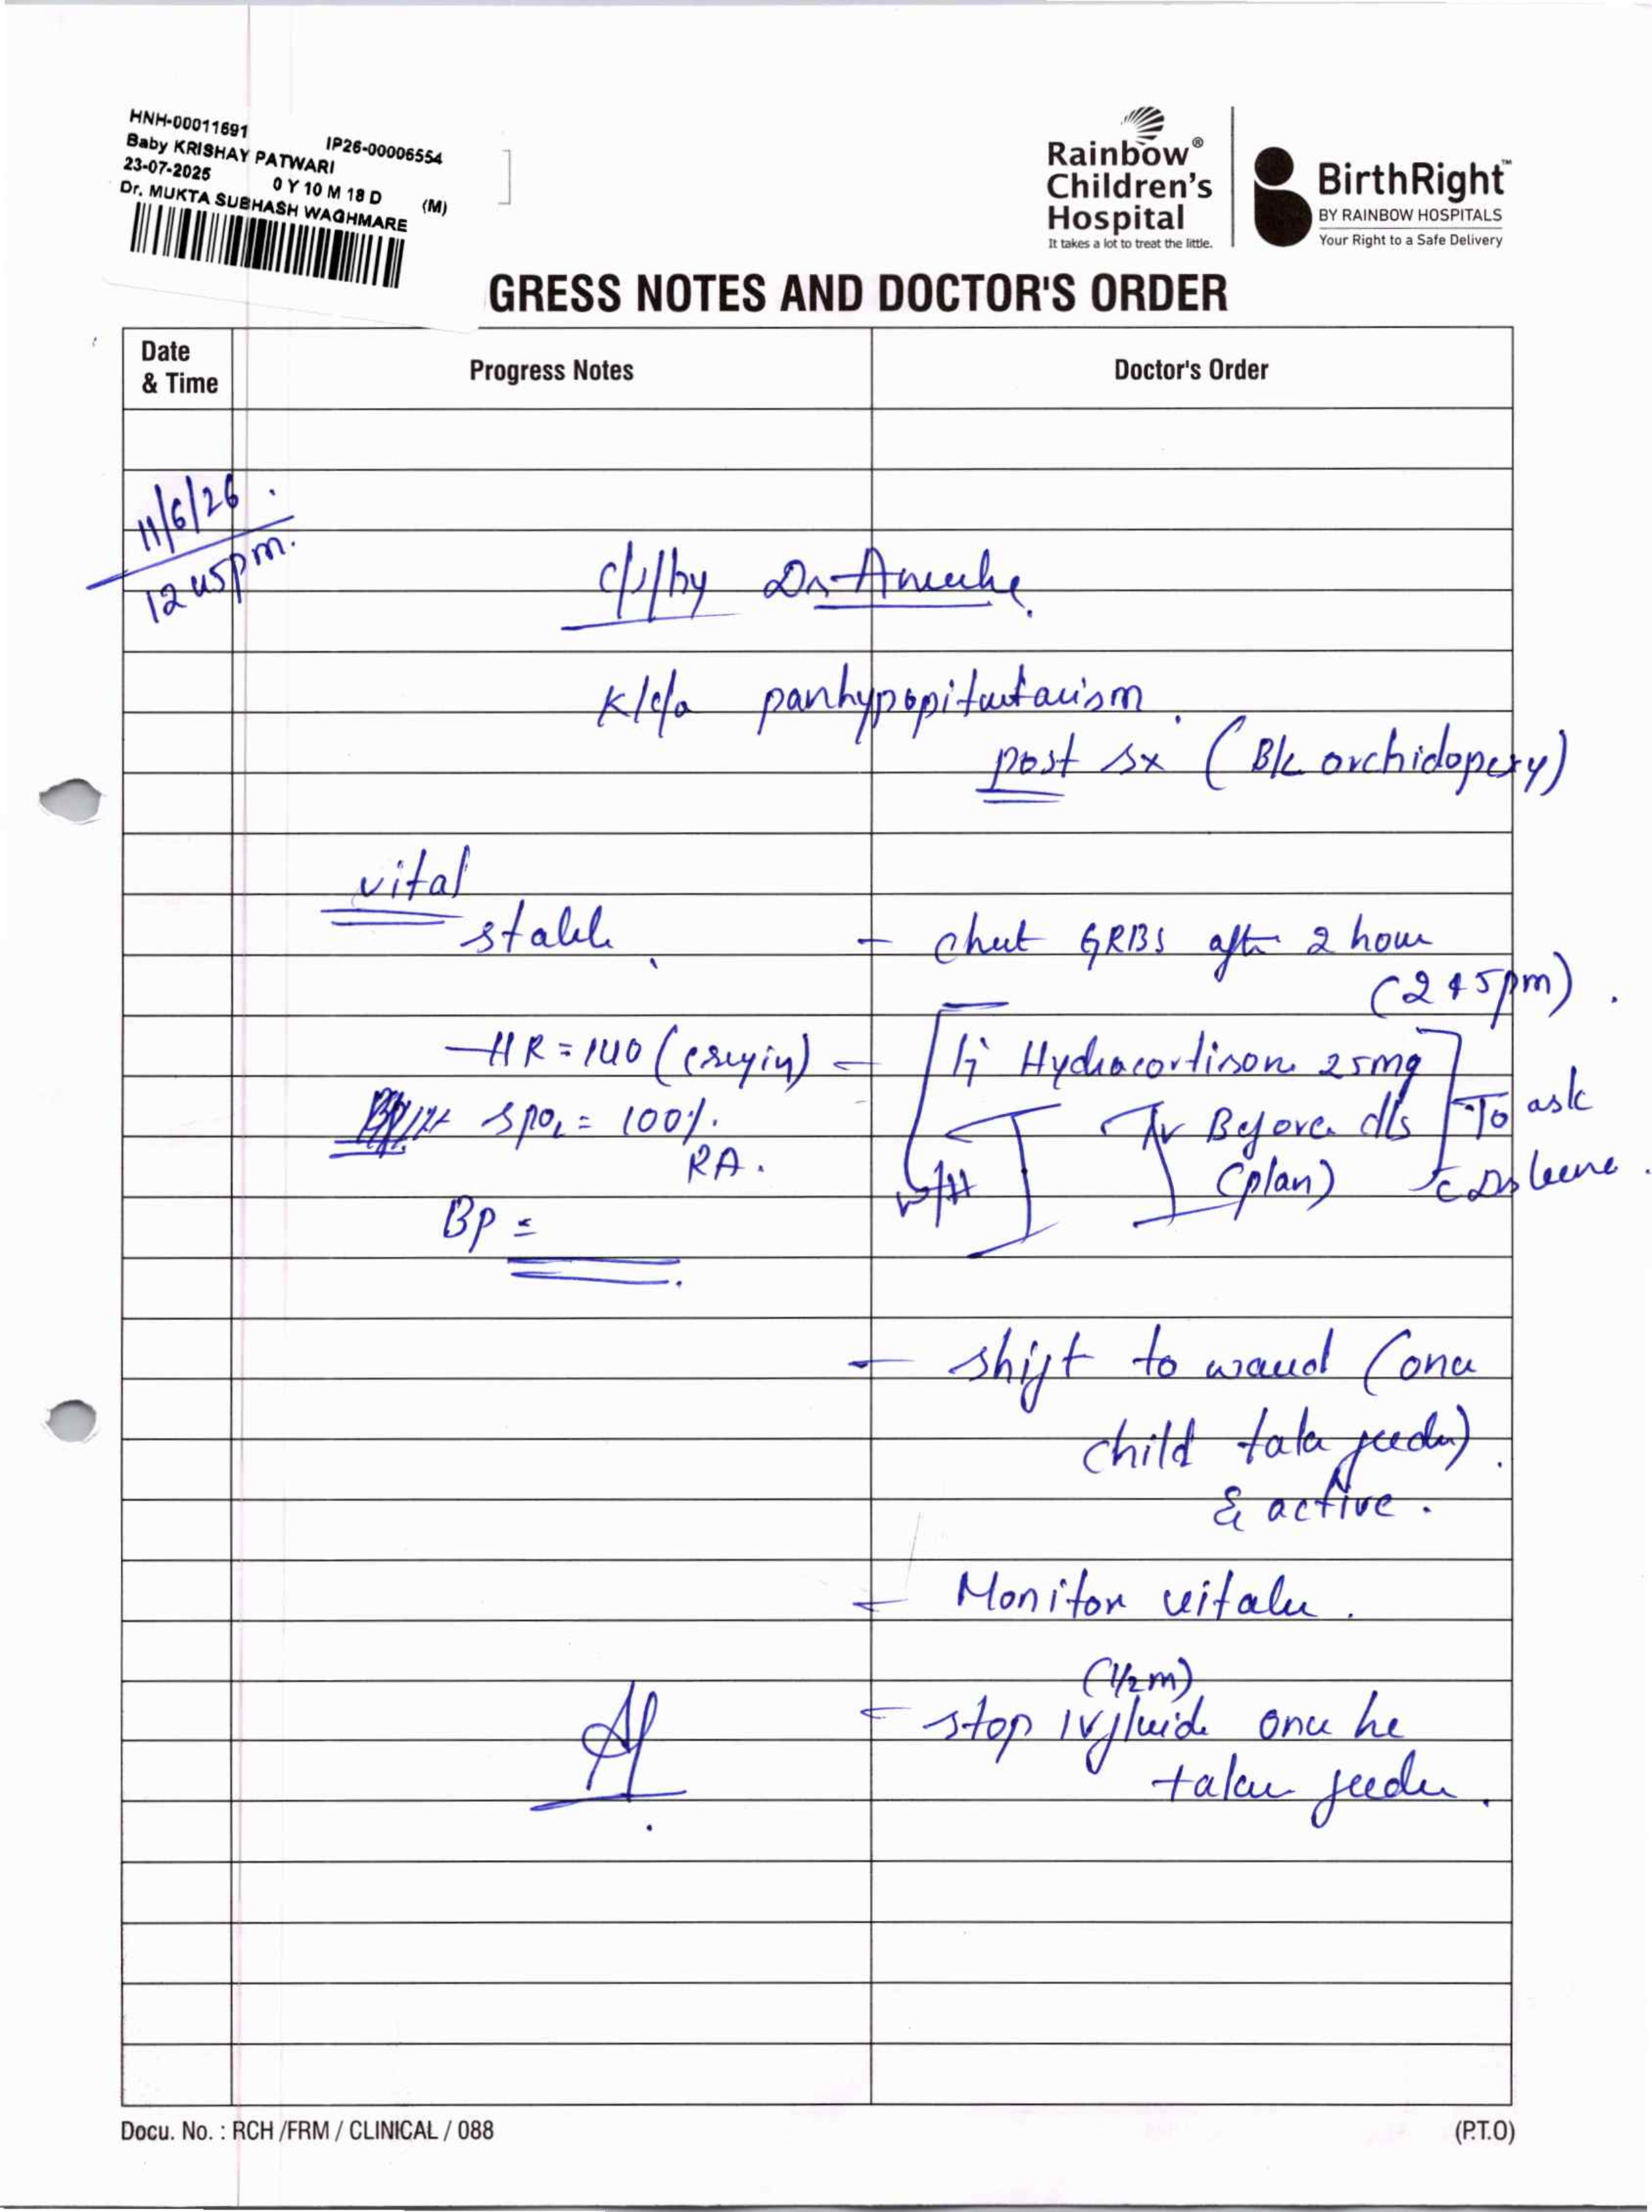 HNH-00011691
IP26-00006554
Baby KRISHAY PATWARI
23-07-2025 0 Y 10 M 18 D (M)
Dr. MUKTA SUBHASH WAGHMARE
Rainbow®
Children's
Hospital
It takes a lot to treat the little.
BirthRight™
BY RAINBOW HOSPITALS
Your Right to a Safe Delivery
GRESS NOTES AND DOCTOR'S ORDER
Date & Time
Progress Notes
Doctor's Order
11/6/26.
12 45pm.
c/s/by Dr
K/c/o panhypopituitarism.
post sx (B/L orchidopexy)
vital
stable.
- check GRBS after 2 hour
(2 45pm).
HR = 140 (crying)
- Hydrocortison 25mg
SpO2 = 100%.
RA.
IV Before d/s
(plan)
To ask
c Dr
w/H
BP =
- shift to ward (once
child take feeds).
& active.
- Monitor vitals.
(1/2 m)
- stop IV fluids once he
takes feeds.
Docu. No. : RCH /FRM / CLINICAL / 088
(P.T.O)